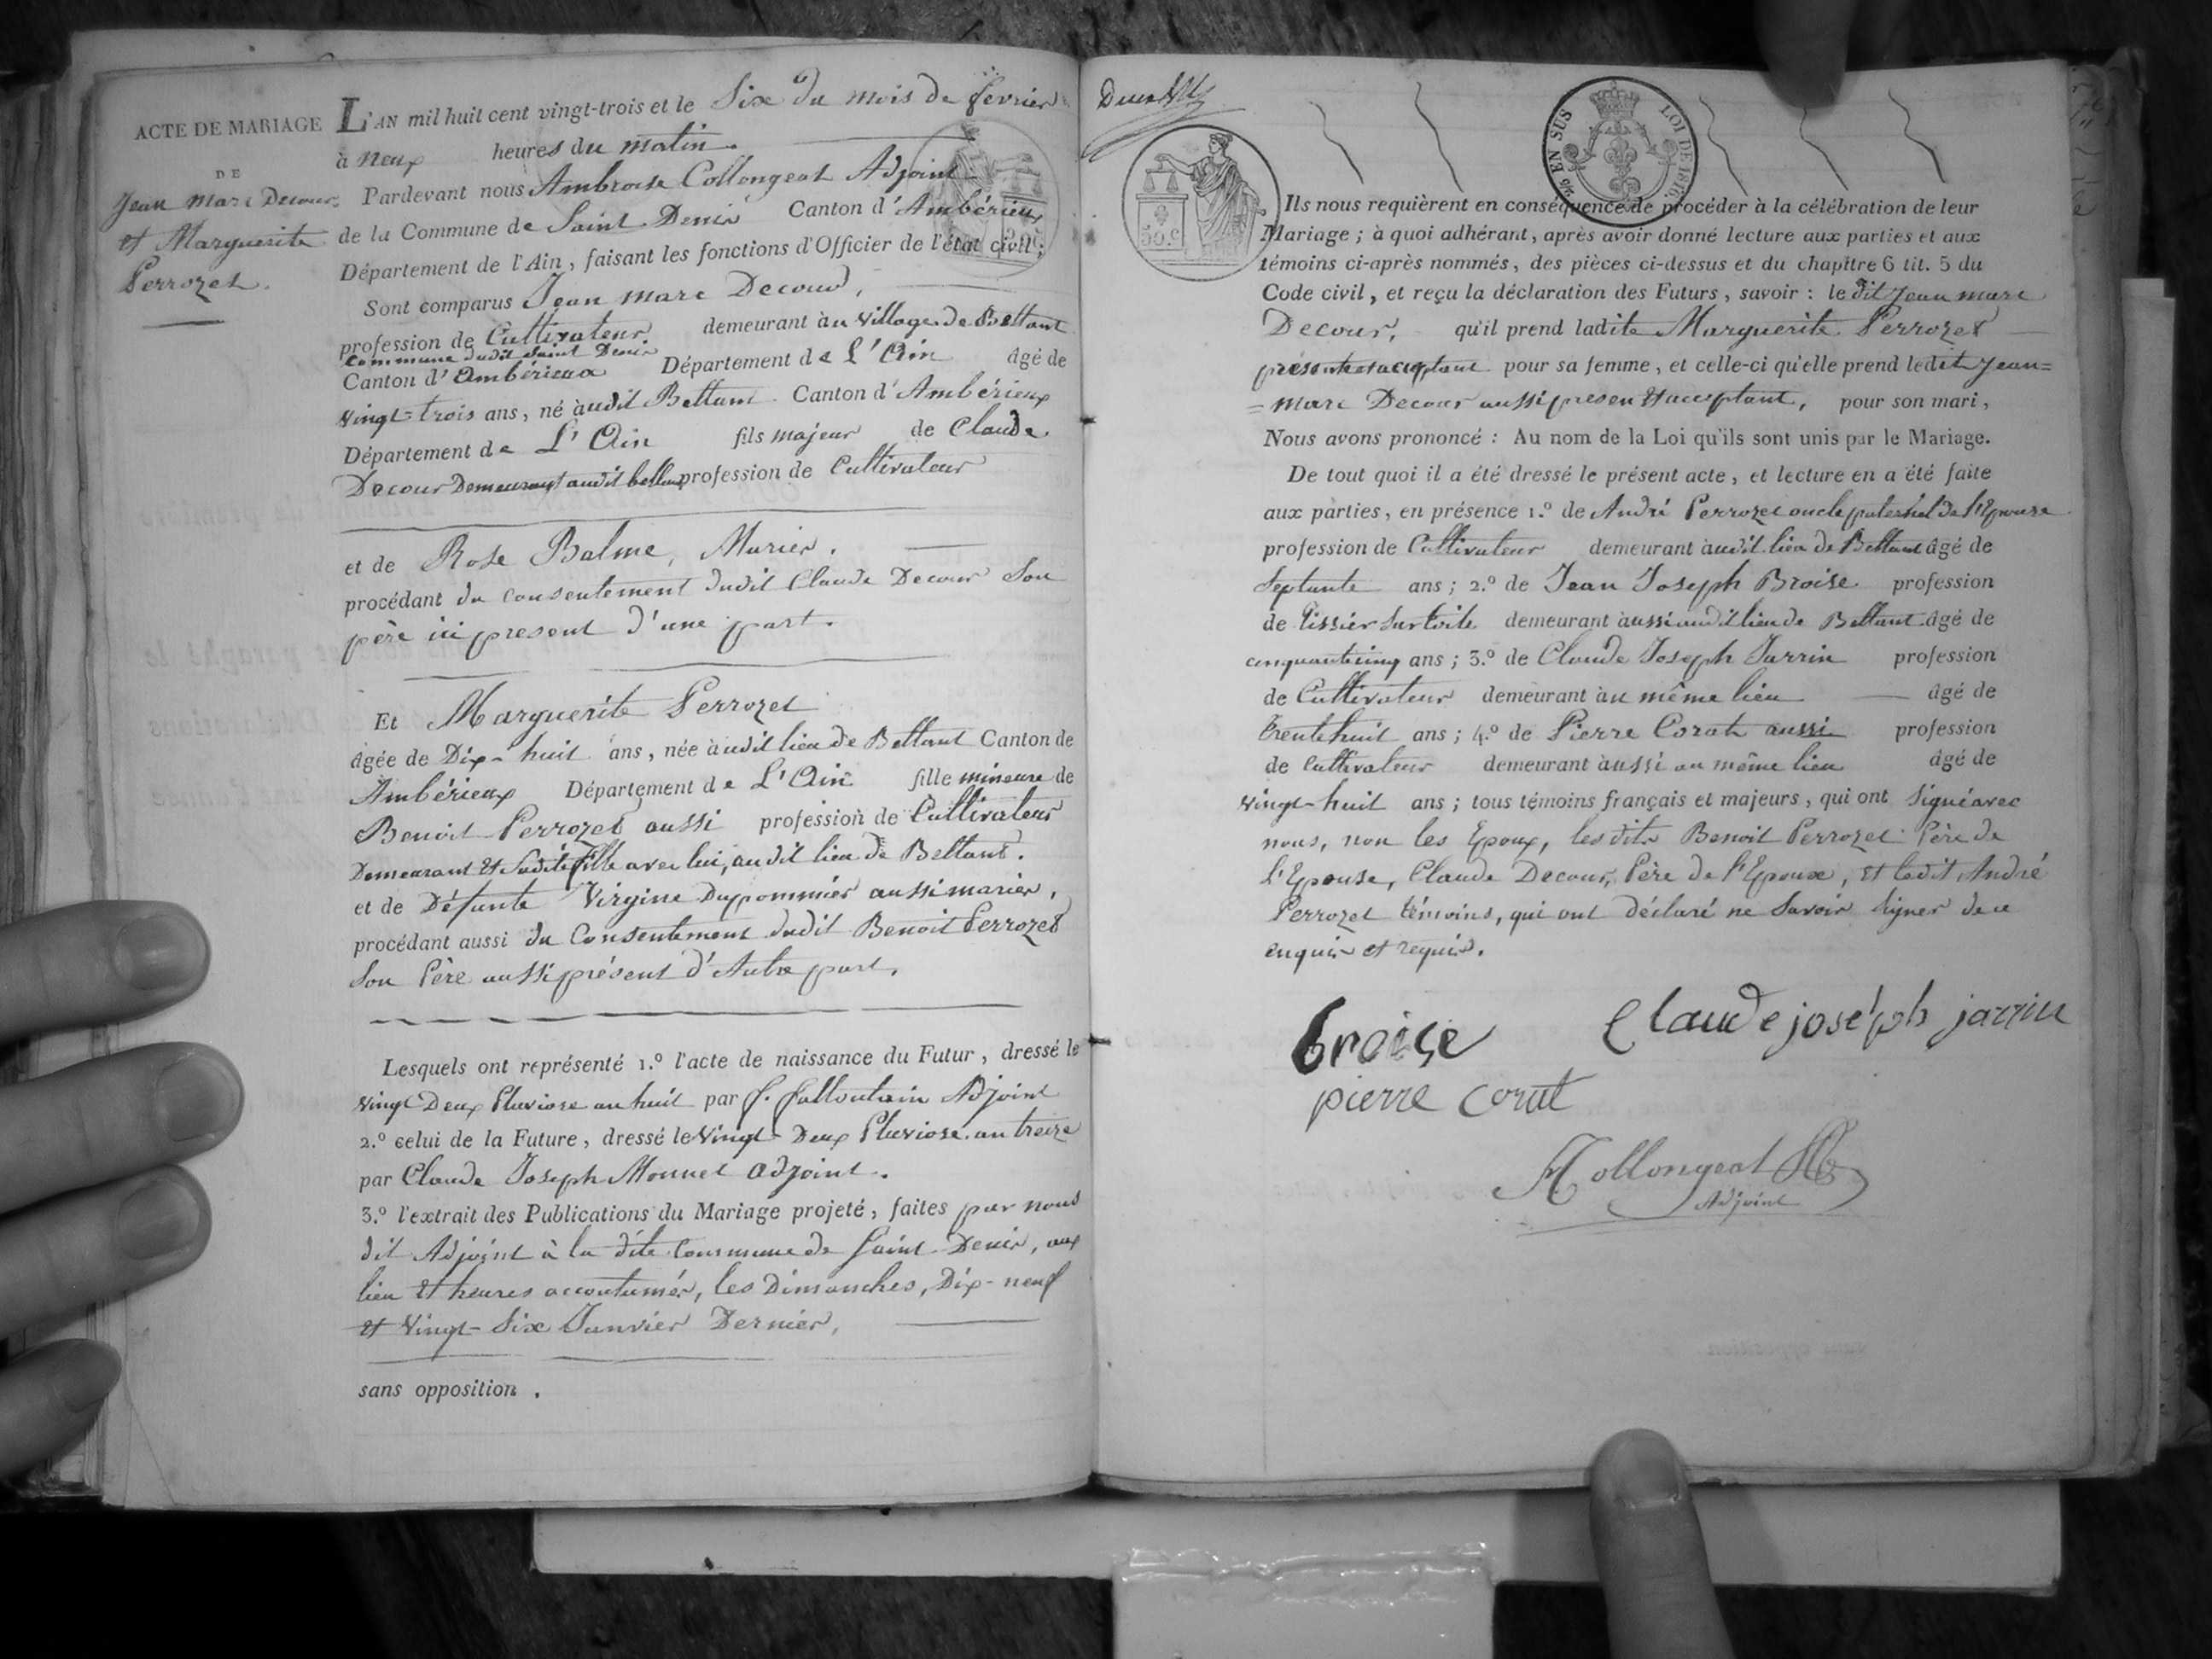 ACTE DE MARIAGE
DE
Jean Marc Decour
et Marguerite
Perrozet.
L'AN mil huit cent vingt-trois et le Six du mois de fevrier
à neuf heures du matin.
Pardevant nous Ambroise Collongeat Adjoint
de la Commune de Saint Denis Canton d'Ambérieux
Département de l'Ain, faisant les fonctions d'Officier de l'état civil;
Sont comparus Jean Marc Decour,
profession de Cultivateur demeurant au village de Bettant
commune dudit Saint Denis
Canton d'Ambérieux Département de L'Ain âgé de
vingt-trois ans, né audit Bettant Canton d'Ambérieux
Département de L'Ain fils majeur de Claude
Decour Demeurant audit bettant profession de Cultivateur
et de Rose Balme, Mariés.
procédant du consentement dudit Claude Decour Son
père ici present d'une part.
Et Marguerite Perrozet
âgée de Dix-huit ans, née audit lieu de Bettant Canton de
Ambérieux Département de L'Ain fille mineure de
Benoit Perrozet aussi profession de Cultivateur
Demeurant et Sadite fille avec lui, audit lieu de Bettant.
et de Défunte Virgine Dupommier aussi mariés,
procédant aussi du Consentement dudit Benoit Perrozet
Son Père aussi présent d'Autre part.
Lesquels ont représenté 1.º l'acte de naissance du Futur, dressé le
vingt Deux Pluviose an huit par Adjoint
2.º celui de la Future, dressé le vingt-Deux Pluviose an treize
par Claude Joseph Monnet adjoint.
3.º l'extrait des Publications du Mariage projeté, faites par nous
dit Adjoint à la dite Commune de Saint Denis, aux
lieu et heures accoutumés, les Dimanches, Dix-neuf
et vingt-Six Janvier Dernier,
sans opposition.
50.c
EN SUS
LOI DE 1816
Ils nous requièrent en conséquence de procéder à la célébration de leur
Mariage; à quoi adhérant, après avoir donné lecture aux parties et aux
témoins ci-après nommés, des pièces ci-dessus et du chapitre 6 tit. 5 du
Code civil, et reçu la déclaration des Futurs, savoir: le dit Jean marc
Decour, qu'il prend ladite Marguerite Perrozet
présente et acceptant pour sa femme, et celle-ci qu'elle prend ledit Jean=
=Marc Decour aussi présent et acceptant, pour son mari,
Nous avons prononcé: Au nom de la Loi qu'ils sont unis par le Mariage.
De tout quoi il a été dressé le présent acte, et lecture en a été faite
aux parties, en présence 1.º de André Perrozet oncle paternel de l'Epouse
profession de Cultivateur demeurant audit lieu de Bettant âgé de
Septante ans; 2.º de Jean Joseph Broise profession
de tissier sur toile demeurant aussi audit lieu de Bettant âgé de
cinquante cinq ans; 3.º de Claude Joseph Jarrin profession
de Cultivateur demeurant au même lieu âgé de
trente huit ans; 4.º de Pierre Corat aussi profession
de Cultivateur demeurant aussi au même lieu âgé de
vingt-huit ans; tous témoins français et majeurs, qui ont Signé avec
nous, non les Epoux, lesdits Benoit Perrozet Père de
l'Epouse, Claude Decour, Père de l'Epoux, et ledit André
Perrozet témoins, qui ont déclaré ne Savoir Signer de ce
enquis et requis.
broise Claude joseph jarrin
pierre corat
A Collongeat
Adjoint